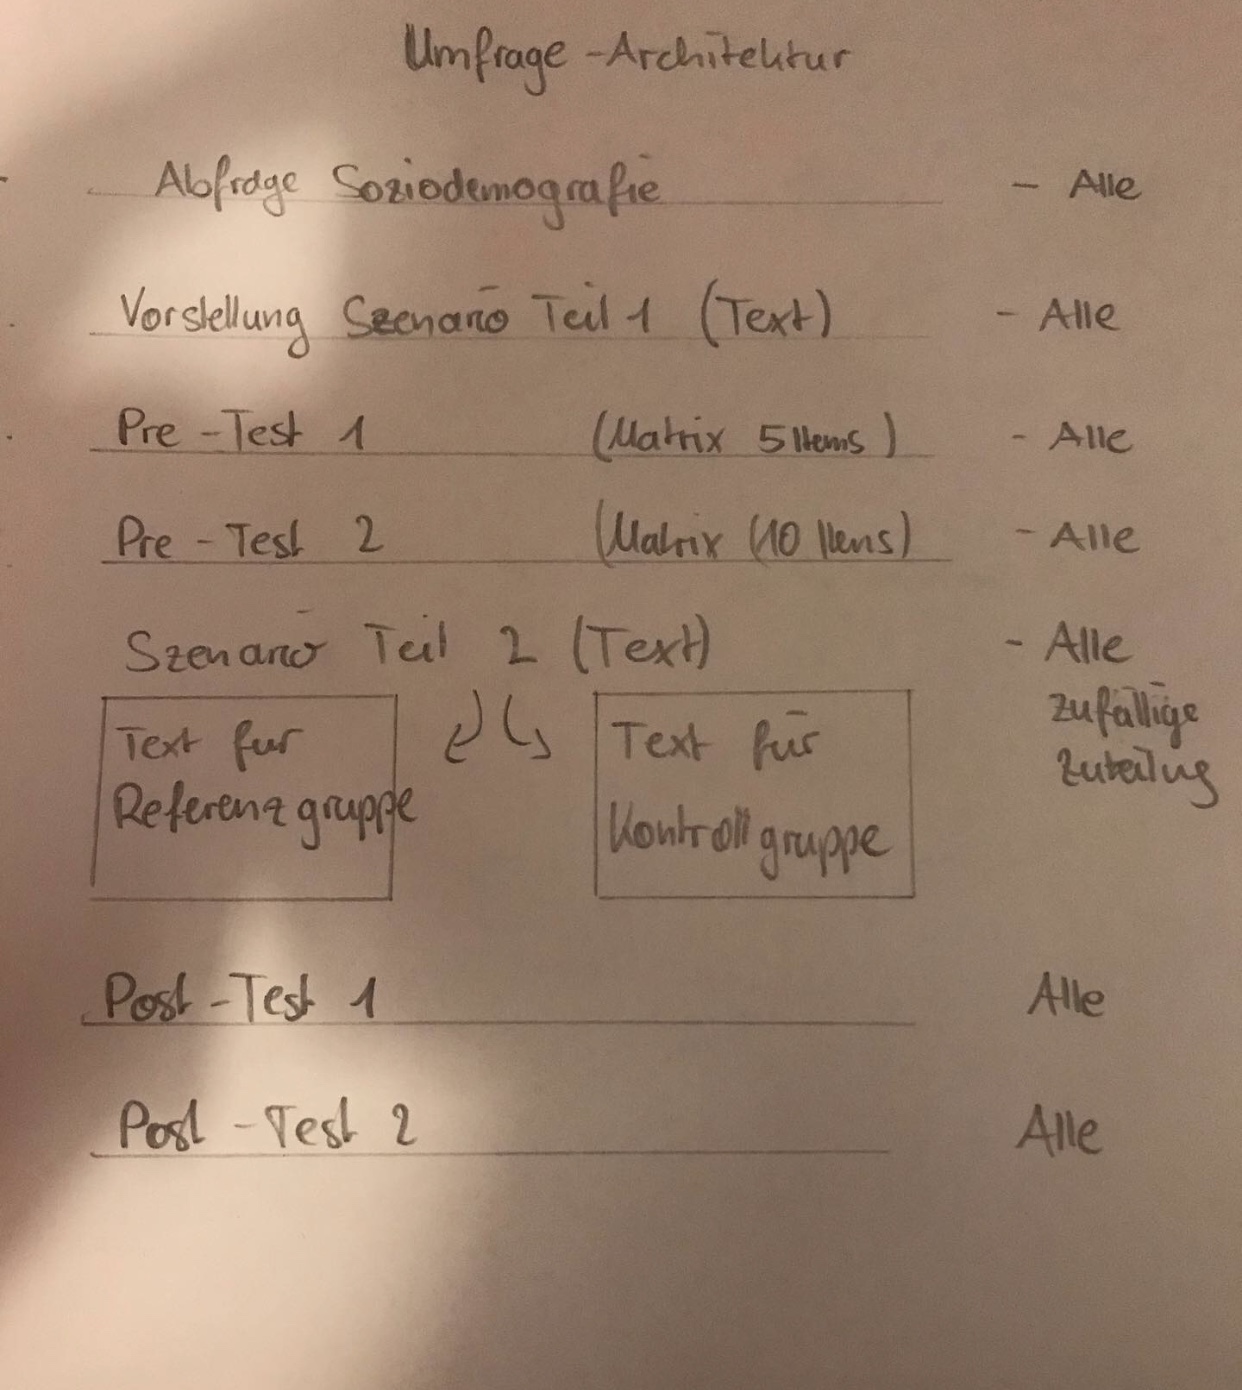 Umfrage-Architektur
Abfrage Soziodemografie - Alle
Vorstellung Szenario Teil 1 (Text) - Alle
Pre-Test 1 (Matrix 5 Items) - Alle
Pre-Test 2 (Matrix (10 Items) - Alle
Szenario Teil 2 (Text) - Alle
zufällige
Zuteilung
Text für
Referenzgruppe
Text für
Kontrollgruppe
Post-Test 1 Alle
Post-Test 2 Alle